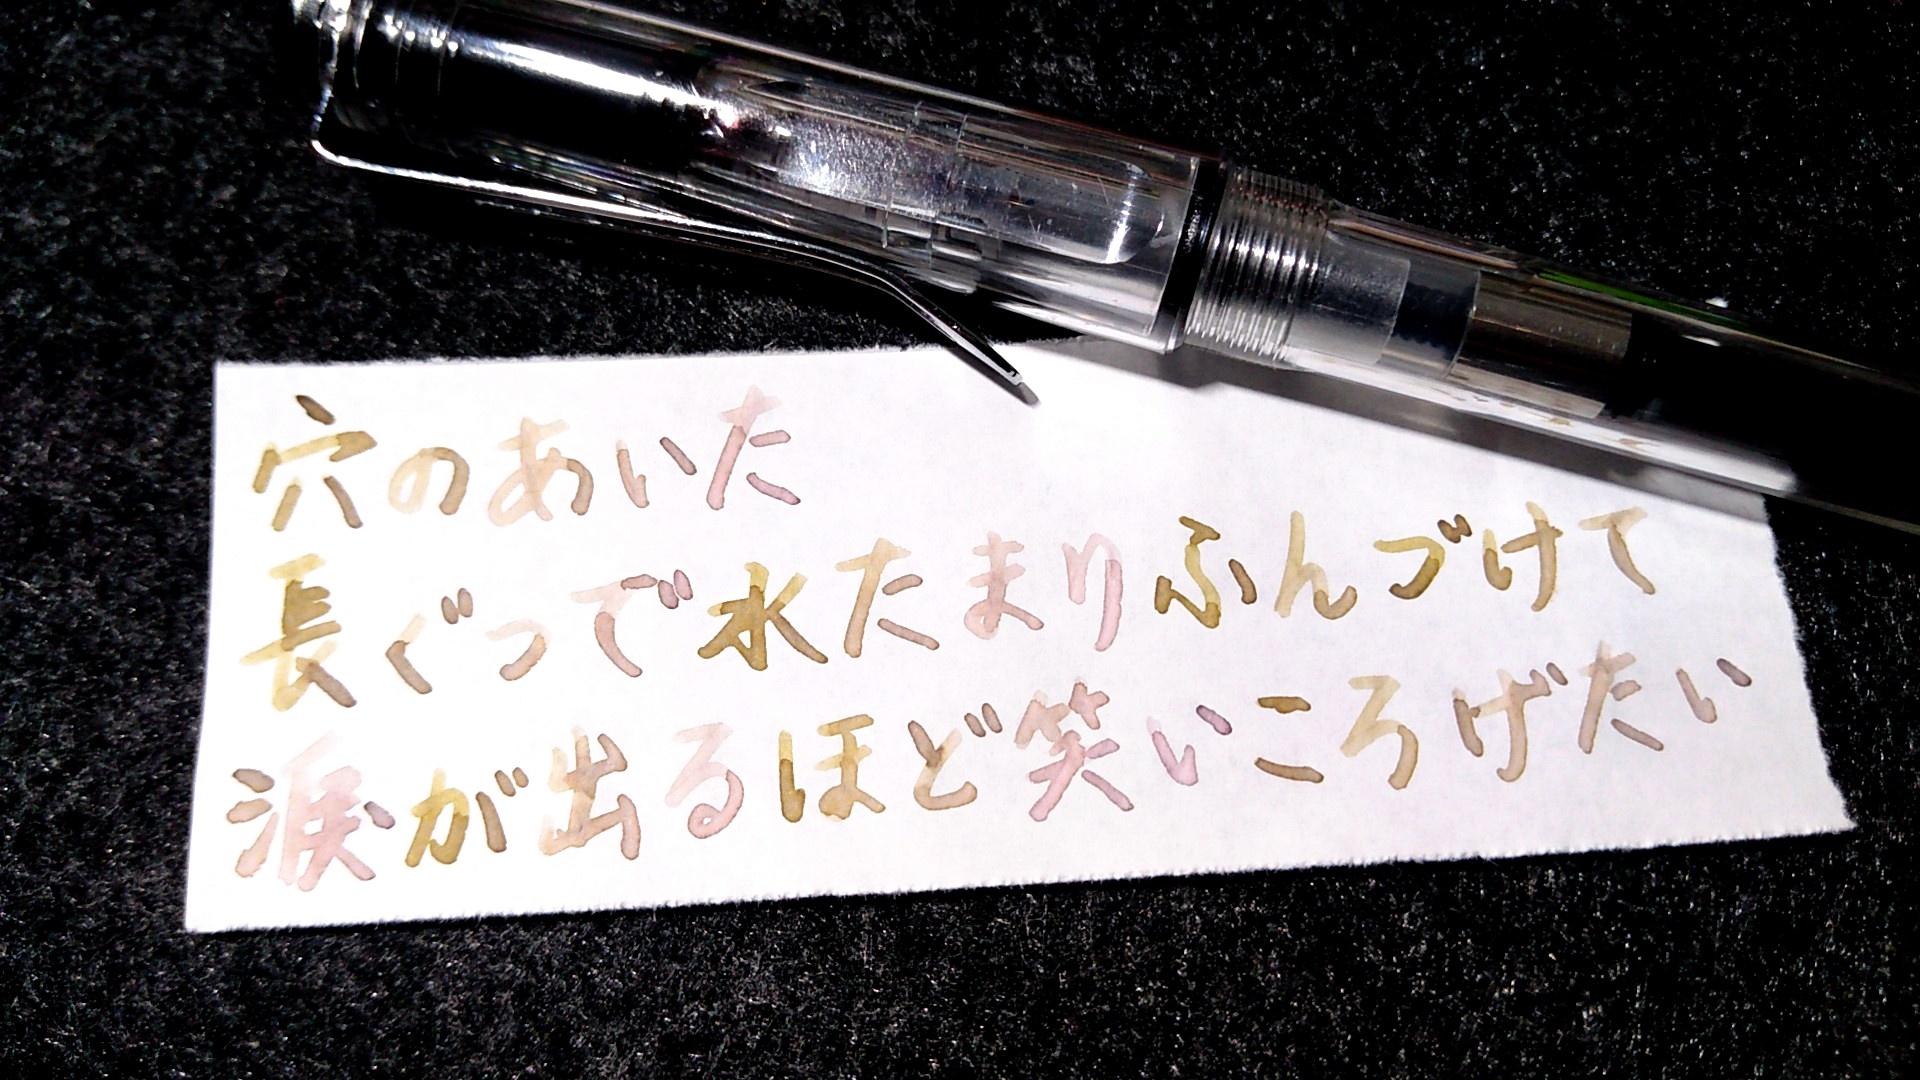 穴のあいた
長ぐつで水たまりふんづけて
涙が出るほど笑いころげたい